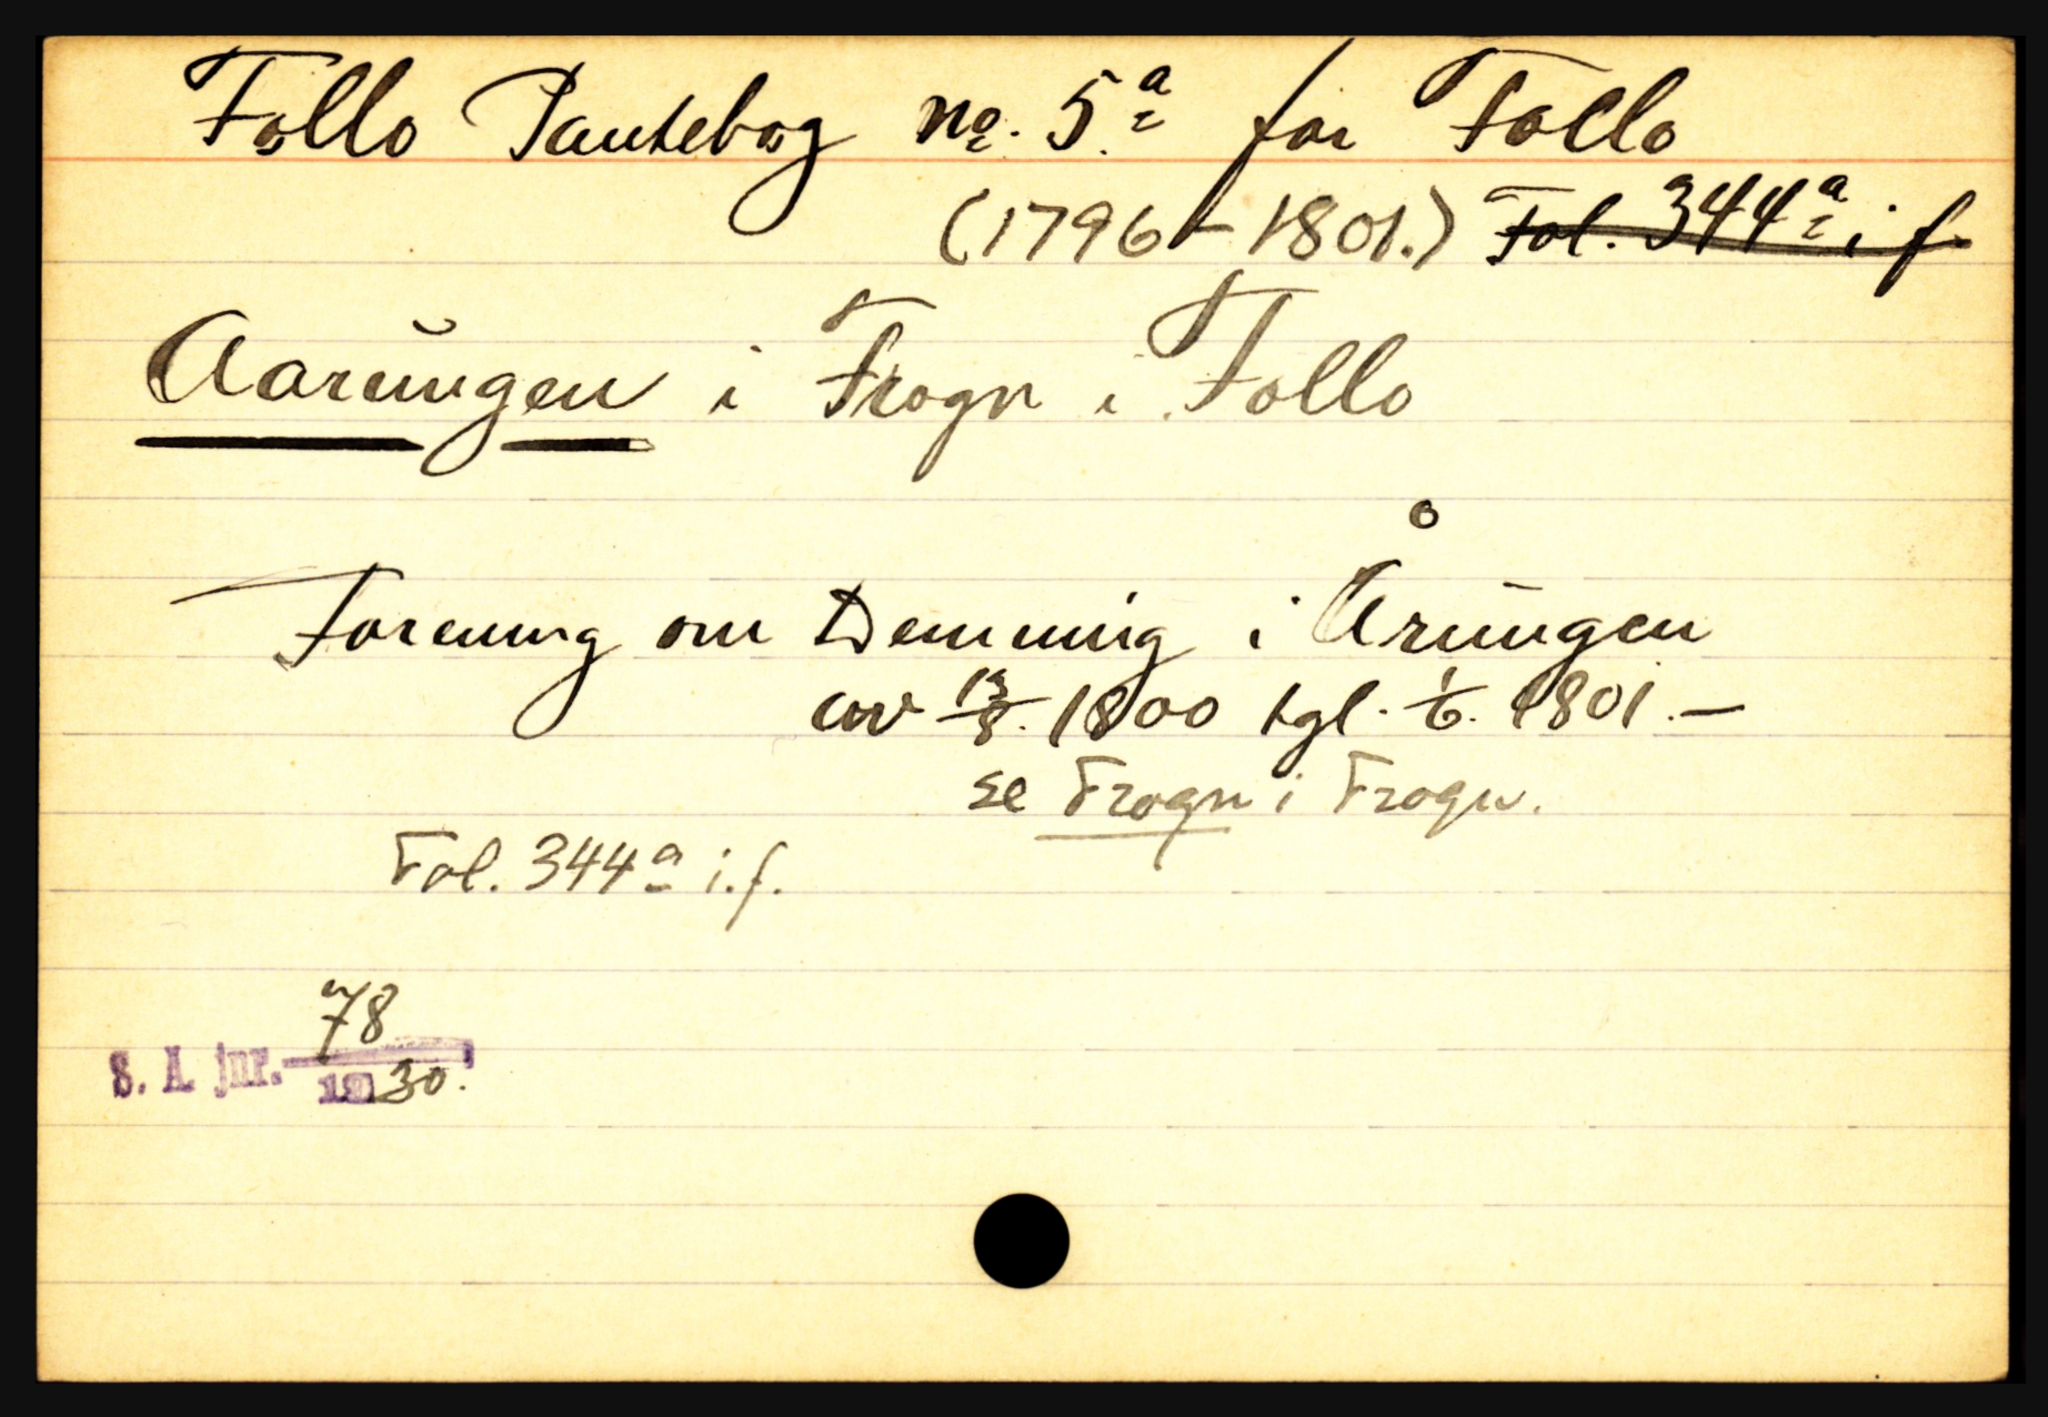 Follo Pantebog No. 5a for Follo
(1796 – 1801.) Fol. 344a i f.
Aarungen i Frogn i Follo
Forening om Demning i Årungen
av 13/8. 1800 tgl. 1/6. 1801. –
se Frogn i Frogn.
Fol. 344a i.f.
S. A. jnr. 78/1930.